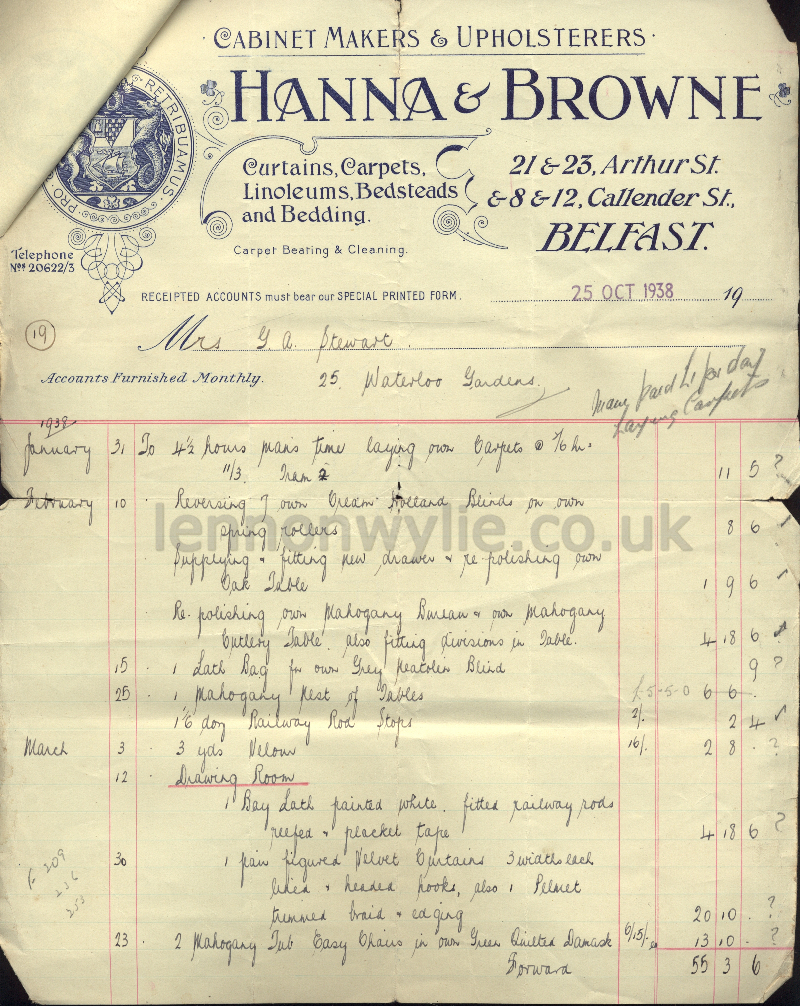 · CABINET MAKERS & UPHOLSTERERS ·
HANNA & BROWNE
PRO RETRIBUAMUS
Curtains, Carpets,
Linoleums, Bedsteads
and Bedding.
Carpet Beating & Cleaning.
21 & 23, Arthur St.
& 8 & 12, Callender St.,
BELFAST.
Telephone
Nos 20622/3
RECEIPTED ACCOUNTS must bear our SPECIAL PRINTED FORM.
25 OCT 1938 19
19
Mrs G. A. Stewart.
Accounts Furnished Monthly. 25. Waterloo Gardens.
Many paid £1 per day
Laying Carpets
1938
January 31 To 4½ hours mans time laying own Carpets @ 1/6 hr.
11/3. Tram 2 11 5 ?
February 10 · Reversing 7 own Cream Holland Blinds on own
spring rollers 8 6
· Supplying & fitting new drawer & re polishing own
Oak Table 1 9 6 ✓
· Re-polishing own Mahogany Bureau & own Mahogany
Cutlery Table. also fitting divisions in Table. 4 18 6 ✓
15 · 1 Lath Bag for own Grey Blind 9 ?
25 · 1 Mahogany Nest of Tables £5-5-0 6 6 .
1 1/6 doz Railway Rod Stops 2/. 2 4 ✓
March 3 · 3 yds Velour 16/. 2 8 . ?
12 · Drawing Room
1 Bay Lath painted white. fitted railway rods
reefed & placket tape 4 18 6 ?
30 1 pair figured Velvet Curtains 3 widths each
lined & headed hooks, also 1 Pelmet
trimmed braid & edging 20 10 . ?
209
236
253
23 · 2 Mahogany Tub Easy Chairs in own Green Quilted Damask 6/15/. ea 13 10 . ?
Forward 55 3 6
lennonwylie.co.uk